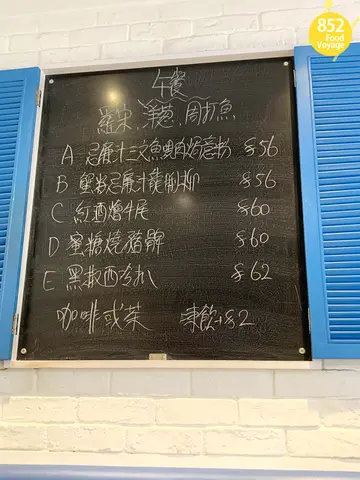 852
Fond
Voyage
午餐
羅宋, 洋葱, 周打魚
A 忌廉汁三文魚蜆肉焗意粉 $56
B 蟹粉忌廉汁龍脷柳 $56
C 紅酒燴牛尾 $60
D 蜜糖燒豬髀 $60
E 黑椒西冷扒 $62
咖啡或茶 凍飲+$2